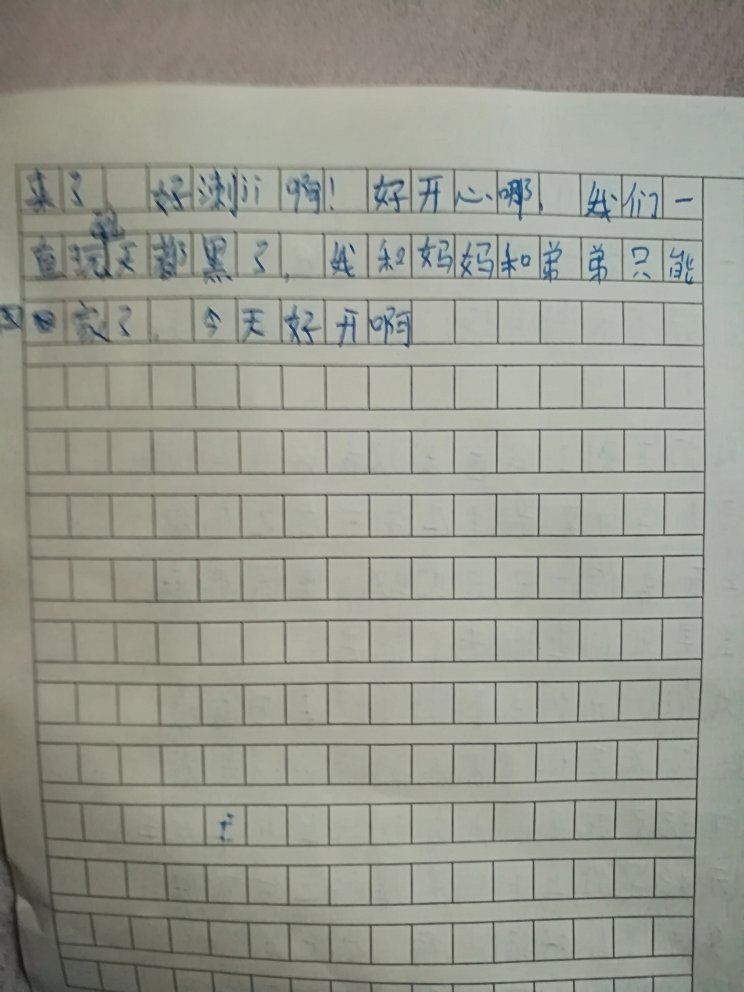 来了 好刺jí啊！好开心哪，我们一
直玩天都黑了，我和妈妈和弟弟只能
回家了。今天好开啊